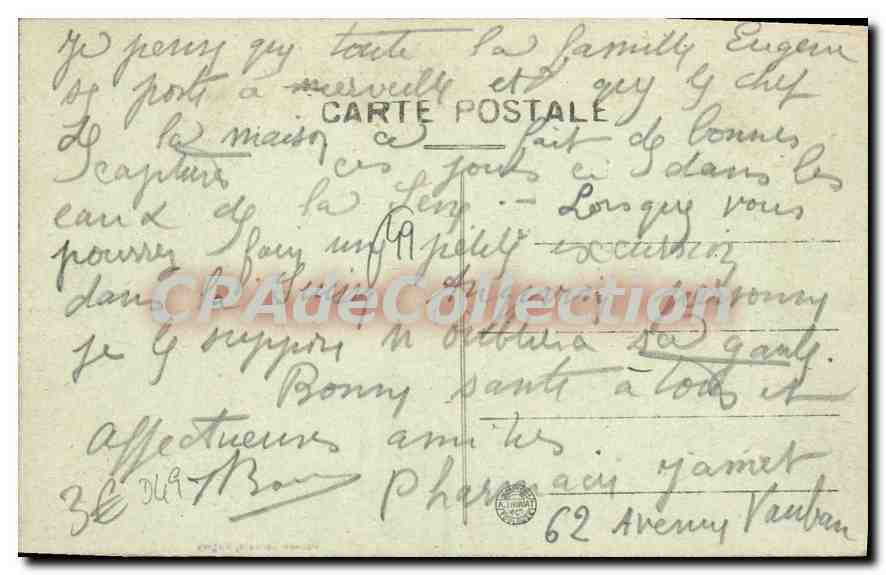 Je pense que toute la famille Eugène
se porte à merveille et que le chef
CARTE POSTALE
de la maison a fait de bonnes
captures ces jours ci dans les
eaux de la . - Lorsque vous
pourrez faire une petite excursion
dans la personne
CPAdeCollection
je le suppose n'oubliera sa gaule.
Bonne santé à tous et
Affectueuses amitiés
3€ D49
49
Pharmacie Jamet
62 Avenue Vauban